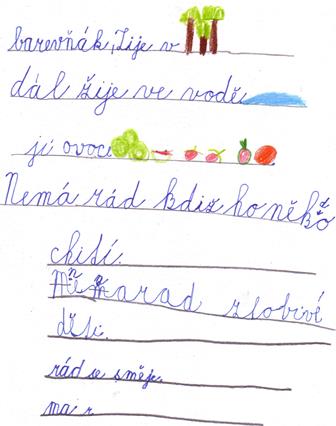 barevňák, Žije v
dál žije ve vodě
jí ovoce
Nemá rád kdiz ho někdo
chití.
Má rad zlobivé
děti.
rád se směje.
ma